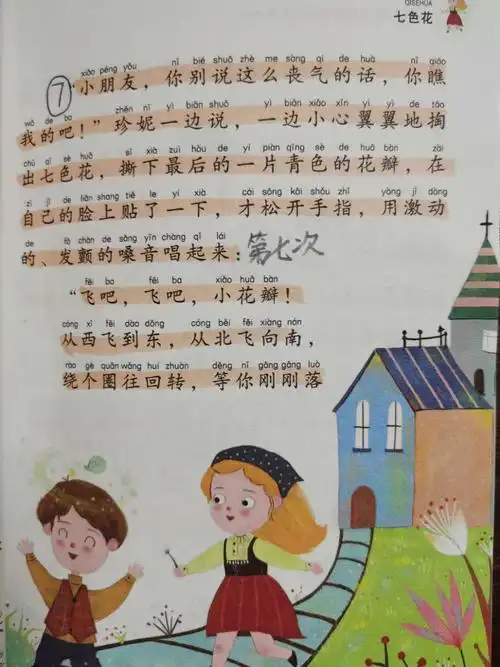 QISEHUA
七色花
xiǎo péng yǒu nǐ bié shuō zhè me sàng qì de huà nǐ qiáo
⑦“小朋友，你别说这么丧气的话，你瞧
wǒ de ba zhēn nī yì biān shuō yì biān xiǎo xīn yì yì de tāo
我的吧！”珍妮一边说，一边小心翼翼地掏
chū qī sè huā sī xià zuì hòu de yí piàn qīng sè de huā bàn zài
出七色花，撕下最后的一片青色的花瓣，在
zì jǐ de liǎn shang tiē le yí xià cái sōng kāi shǒu zhǐ yòng jī dòng
自己的脸上贴了一下，才松开手指，用激动
de fā chàn de sǎng yīn chàng qǐ lái
的、发颤的嗓音唱起来：第七次
fēi ba fēi ba xiǎo huā bàn
“飞吧，飞吧，小花瓣！
cóng xī fēi dào dōng cóng běi fēi xiàng nán
从西飞到东，从北飞向南，
rào gè quān wǎng huí zhuàn děng nǐ gāng gāng luò
绕个圈往回转，等你刚刚落